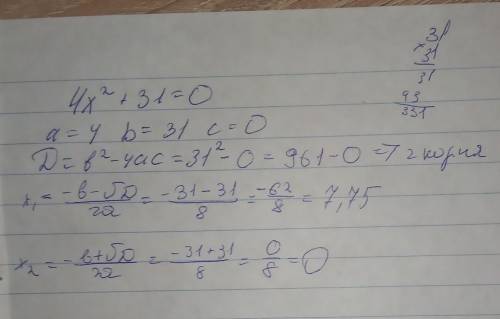 4x² + 31 = 0
a = 4 b = 31 c = 0
D = b² - 4ac = 31² - 0 = 961 - 0 => 2 корня
x₁ = (-b - √D)/2a = (-31 - 31)/8 = -62/8 = 7,75
x₂ = (-b + √D)/2a = (-31 + 31)/8 = 0/8 = 0
31
× 31
31
93